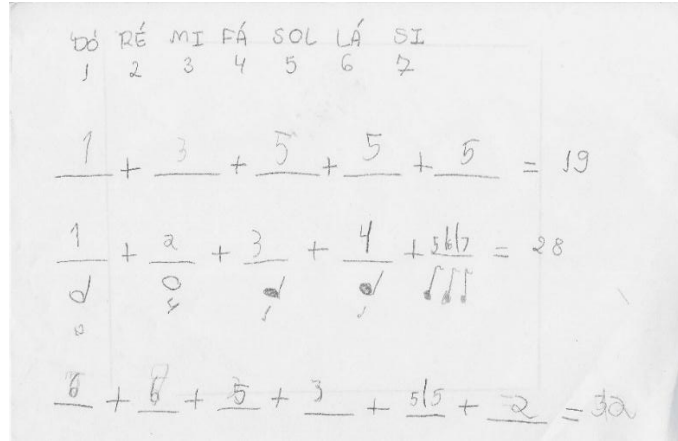 DÓ RÉ MI FÁ SOL LÁ SI
1 2 3 4 5 6 7
1 + 3 + 5 + 5 + 5 = 19
1 + 2 + 3 + 4 + 5|6|7 = 28
6 + 6 + 5 + 3 + 5|5 + 2 = 32